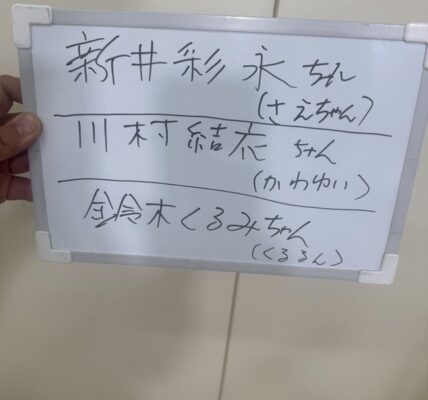 新井彩永ちん
(さえちゃん)
川村結衣ちん
(かわゆい)
鈴木くるみちゃん
(くるるん)